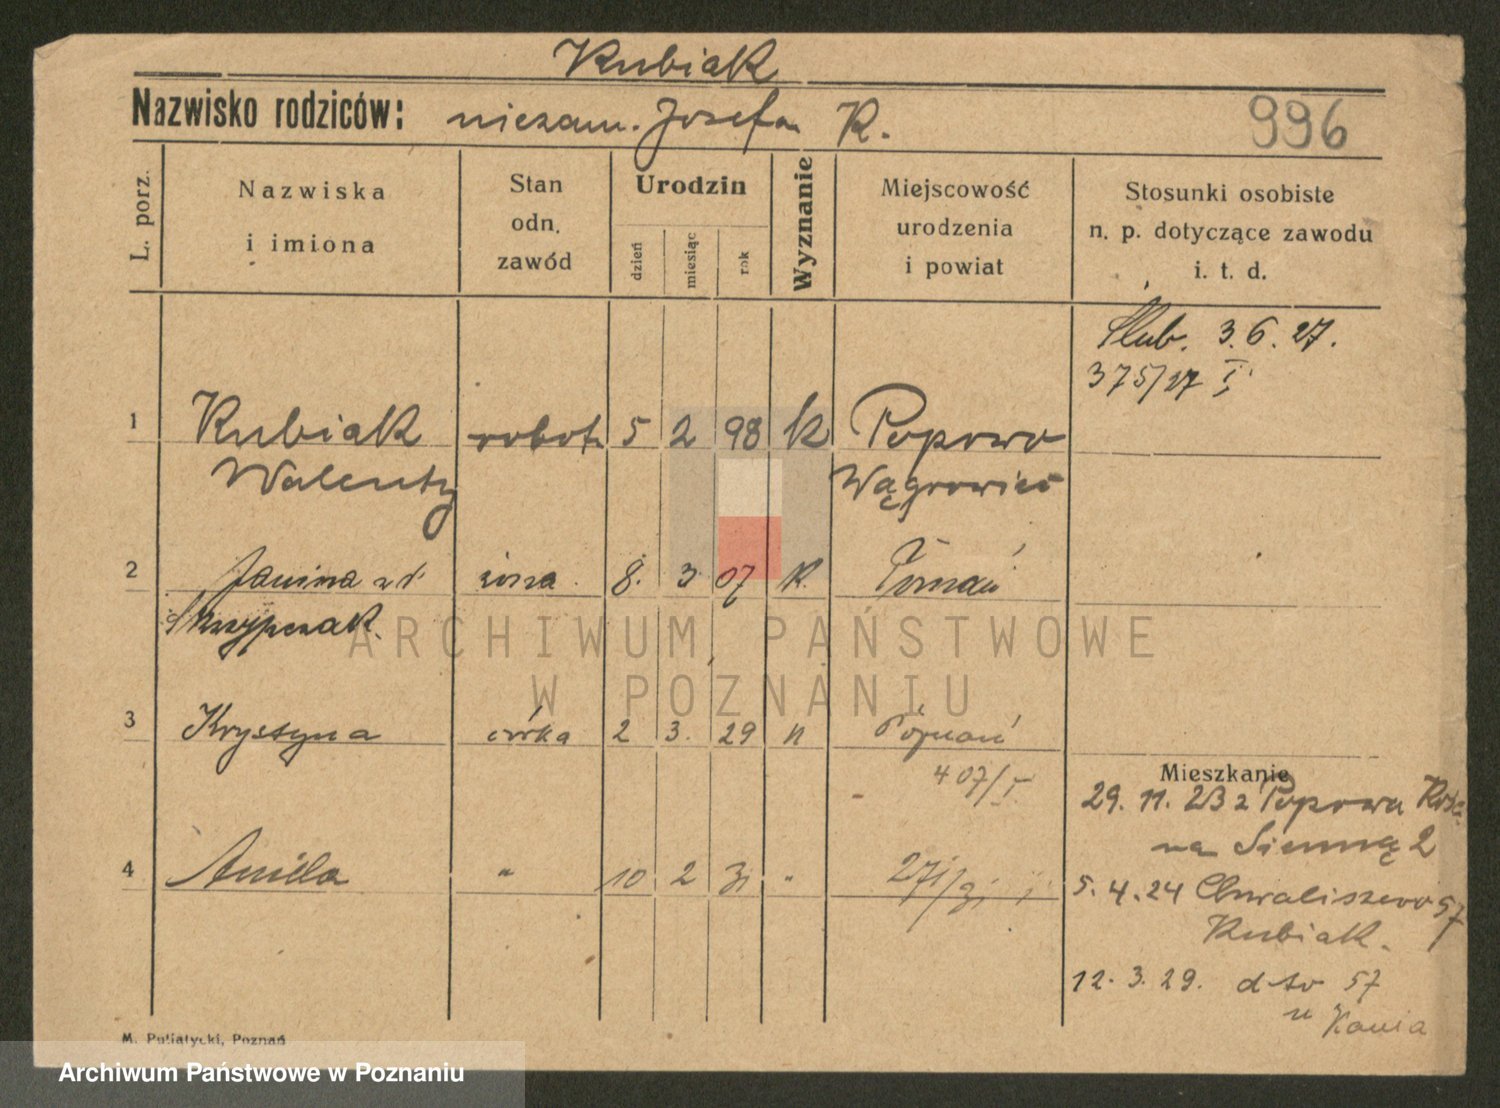 Kubiak
Nazwisko rodziców: niezam. Josefa K.
996
L. porz.
Nazwiska
i imiona
Stan
odn.
zawód
Urodzin
dzień
miesiąc
rok
Wyznanie
Miejscowość
urodzenia
i powiat
Stosunki osobiste
n. p. dotyczące zawodu
i. t. d.
Ślub. 3.6.27.
375/27 I
1 Kubiak robotn 5 2 98 k Popowo
Walenty Wągrowiec
2 Janina z d. żona 8. 3 07 k. Poznań
Skrzypczak
3 Krystyna córka 2 3. 29 n Poznań
407/I
4 Aniela " 10 2 31 "
Mieszkanie
29. 11. 23 z Popowa
na Sienną 2
5. 4. 24 Chwaliszewo 57
Kubiak.
12. 3. 29. dto 57
u Kania
M. Putiatycki, Poznań
ARCHIWUM PAŃSTWOWE
W POZNANIU
Archiwum Państwowe w Poznaniu